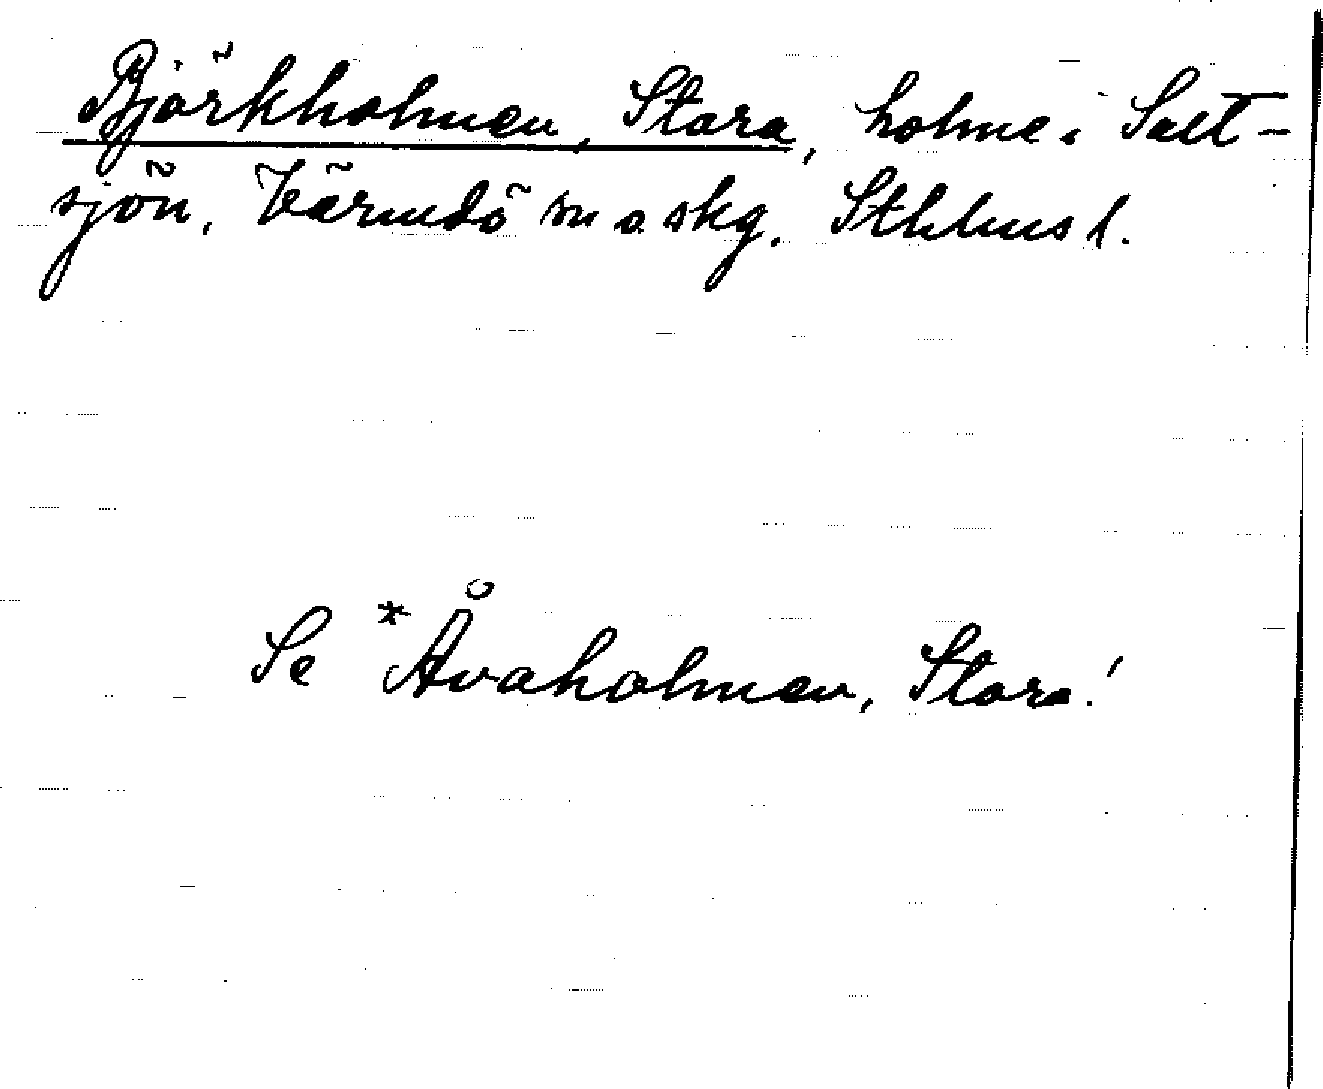 Björkholmen, Stora, holme i Salt-
sjön, Värmdö sn o. skg. Sthlms l.
Se *Åvaholmen, Stora!